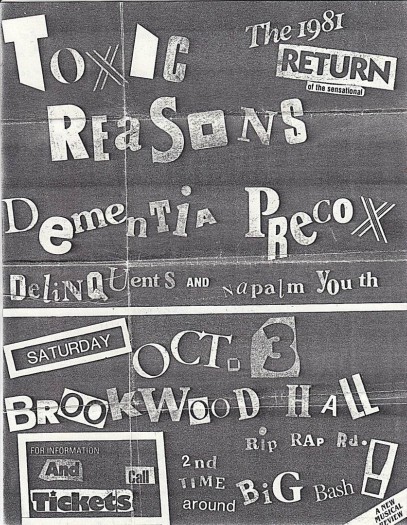 The 1981
RETURN
of the sensational
TOXIC
REaSONS
DemenTiA PRecoX
DeliNQUents AND Napalm YOuth
SATURDAY
OCT. 3
BROOKWOOD HALL
Rip RAP Rd.
FOR INFORMATION
And Call
Tickets
2nd
TIME
around
BiG Bash!
A NEW
MUSICAL
REVIEW